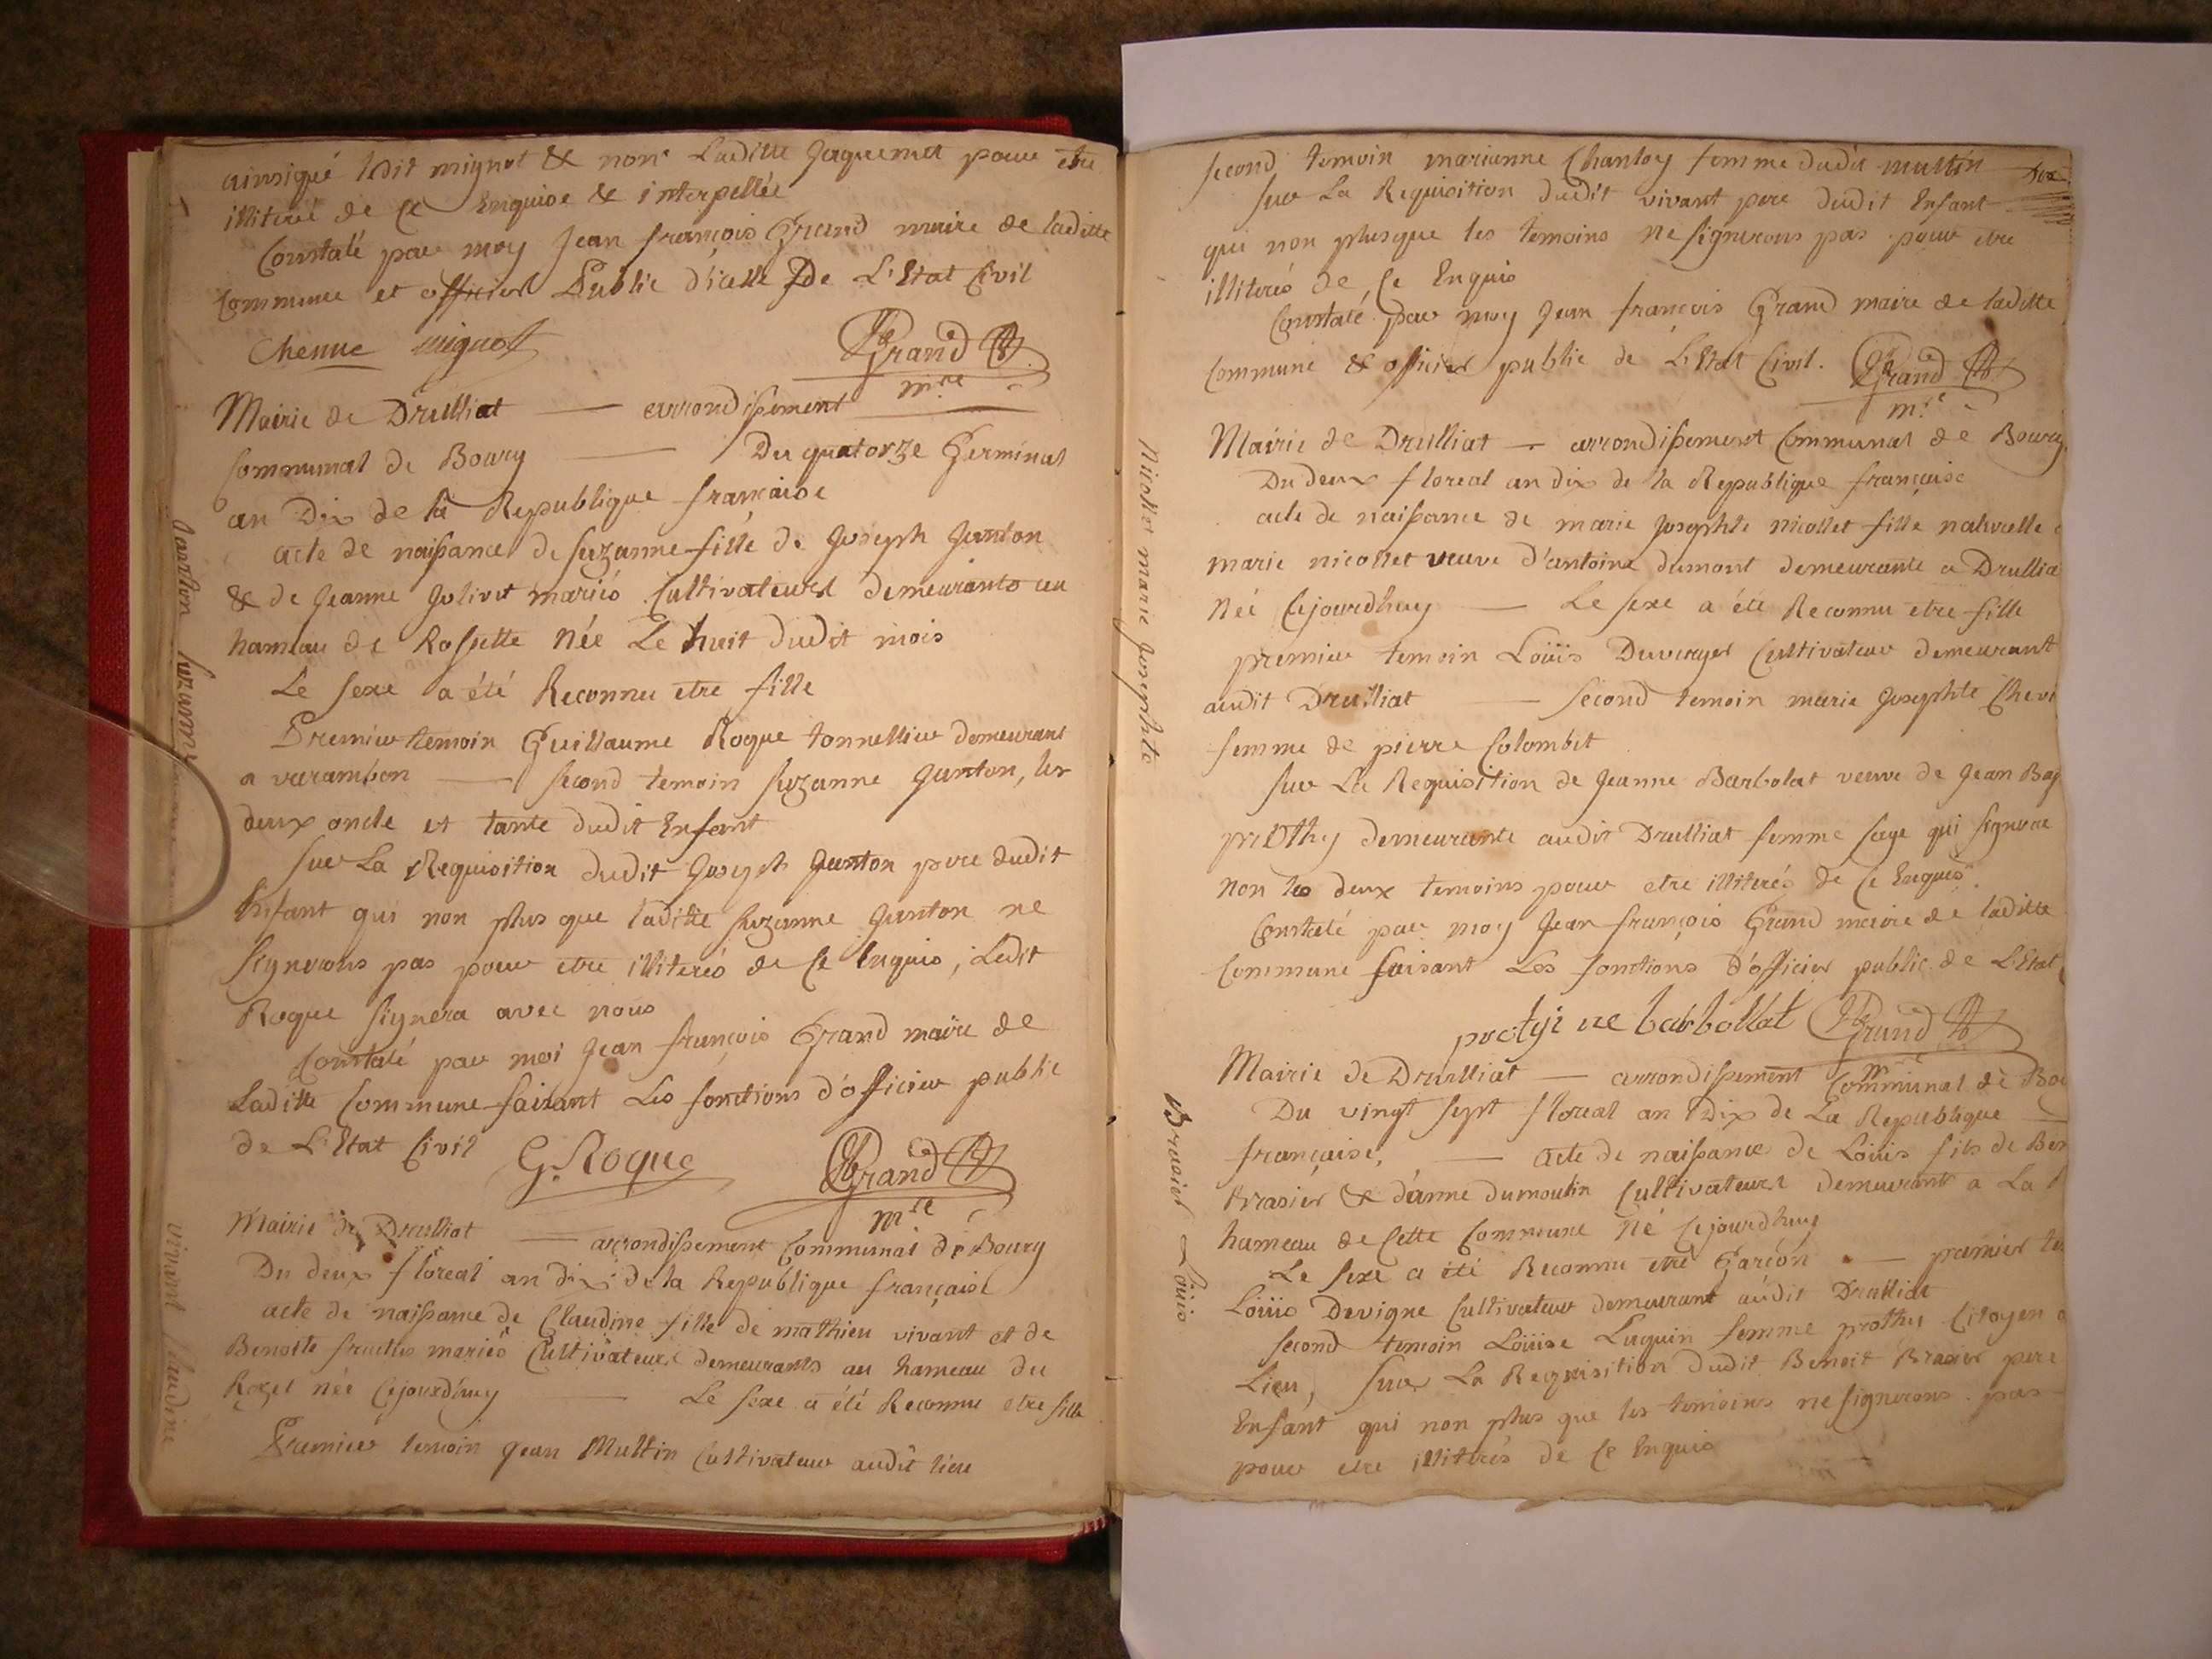 ainsiqué ledit mignot & non Laditte Jaquemet pour etre
illiteré de Ce Enquise & interpellée
Constaté par moy Jean françois Grand maire de laditte
Commune et officier Public d'icelle de L'Etat Civil
Chenue mignot Grand
mre
Mairie de Druillat — arrondissement
Communal de Bourg — Du quatorze Germinal
an Dix de la Republique francaise
acte de naissance de suzanne fille de Joseph Janton
& de Jeanne Jolivet mariés Cultivateurs demeurants au
hameau de Rossette Née Le huit dudit mois
Le sexe a été Reconnu etre fille
Premier temoin Guillaume Roque tonnellier demeurant
a varambon — second temoin suzanne Janton, les
deux oncle et tante dudit Enfant
sur La Requisition dudit Joseph Janton pere dudit
Enfant qui non plus que laditte suzanne Janton ne
signerons pas pour etre illiterés de Ce Enquis, Ledit
Roque signera avec nous
Constaté par moi Jean françois Grand maire de
Laditte Commune faisant Les fonctions d'officier public
de L'Etat Civil G. Roque Grand
mre
Mairie de Druillat — arrondissement Communal de Bourg
Du deux floreal an dix de la Republique française
acte de naissance de Claudine fille de mathieu vivant et de
Benoite mariés Cultivateurs demeurants au hameau du
Rozet née Cejourdhuy — Le sexe a été Reconnu etre fille
Premier temoin Jean Multin Cultivateur audit lieu
Janton suzanne
vivant Claudine
second temoin marianne Chanloy femme dudit multin
sur La Requisition dudit vivant pere dudit Enfant
qui non plusque les temoins ne signerons pas pour etre
illiterés de Ce Enquis
Constaté par moy Jean françois Grand maire de laditte
Commune & officier public de L'Etat Civil. Grand
mre
Mairie de Druillat — arrondissement Communal de Bourg
Du deux floreal an dix de la Republique française
acte de naissance de marie Josephte nicollet fille naturelle
marie nicollet veuve d'antoine dumont demeurante a Druillia
Née Cejourdhuy — Le sexe a été Reconnu etre fille
premier temoin Loüis Duverger Cultivateur demeurant
audit Druilliat — second temoin marie Josephte Chevi
femme de pierre Colombet
sur La Requisition de Jeanne Barbolat veuve de Jean Bap
prothy demeurante audit Druilliat femme sage qui signera
non les deux temoins pour etre illiterés de Ce Enquis
Constaté par moy Jean françois Grand maire de laditte
Commune faisant Les fonctions d'officier public de L'Etat
protyi ne barbollat Grand
mre
Mairie de Druilliat — arrondissement Communal de Bou
Du vingt sept floreal an Dix de La Republique
française, — acte de naissance de Loüis fils de Ben
Brasier & d'anne dumoulin Cultivateurs demeurant a La
hameau de Cette Commune Né Cejourdhuy
Le sexe a été Reconnu etre Garçon — premier te
Loüis Devigne Cultivateur demeurant audit Druilliat
second temoin Loüise Luquin femme prothy Citoyen
Lieu, sur La Requisition dudit Benoit Brasier pere
Enfant qui non plus que les temoins ne signerons pas
pour etre illiterés de Ce Enquis
Nicollet marie Josephte
Brasier Loüis